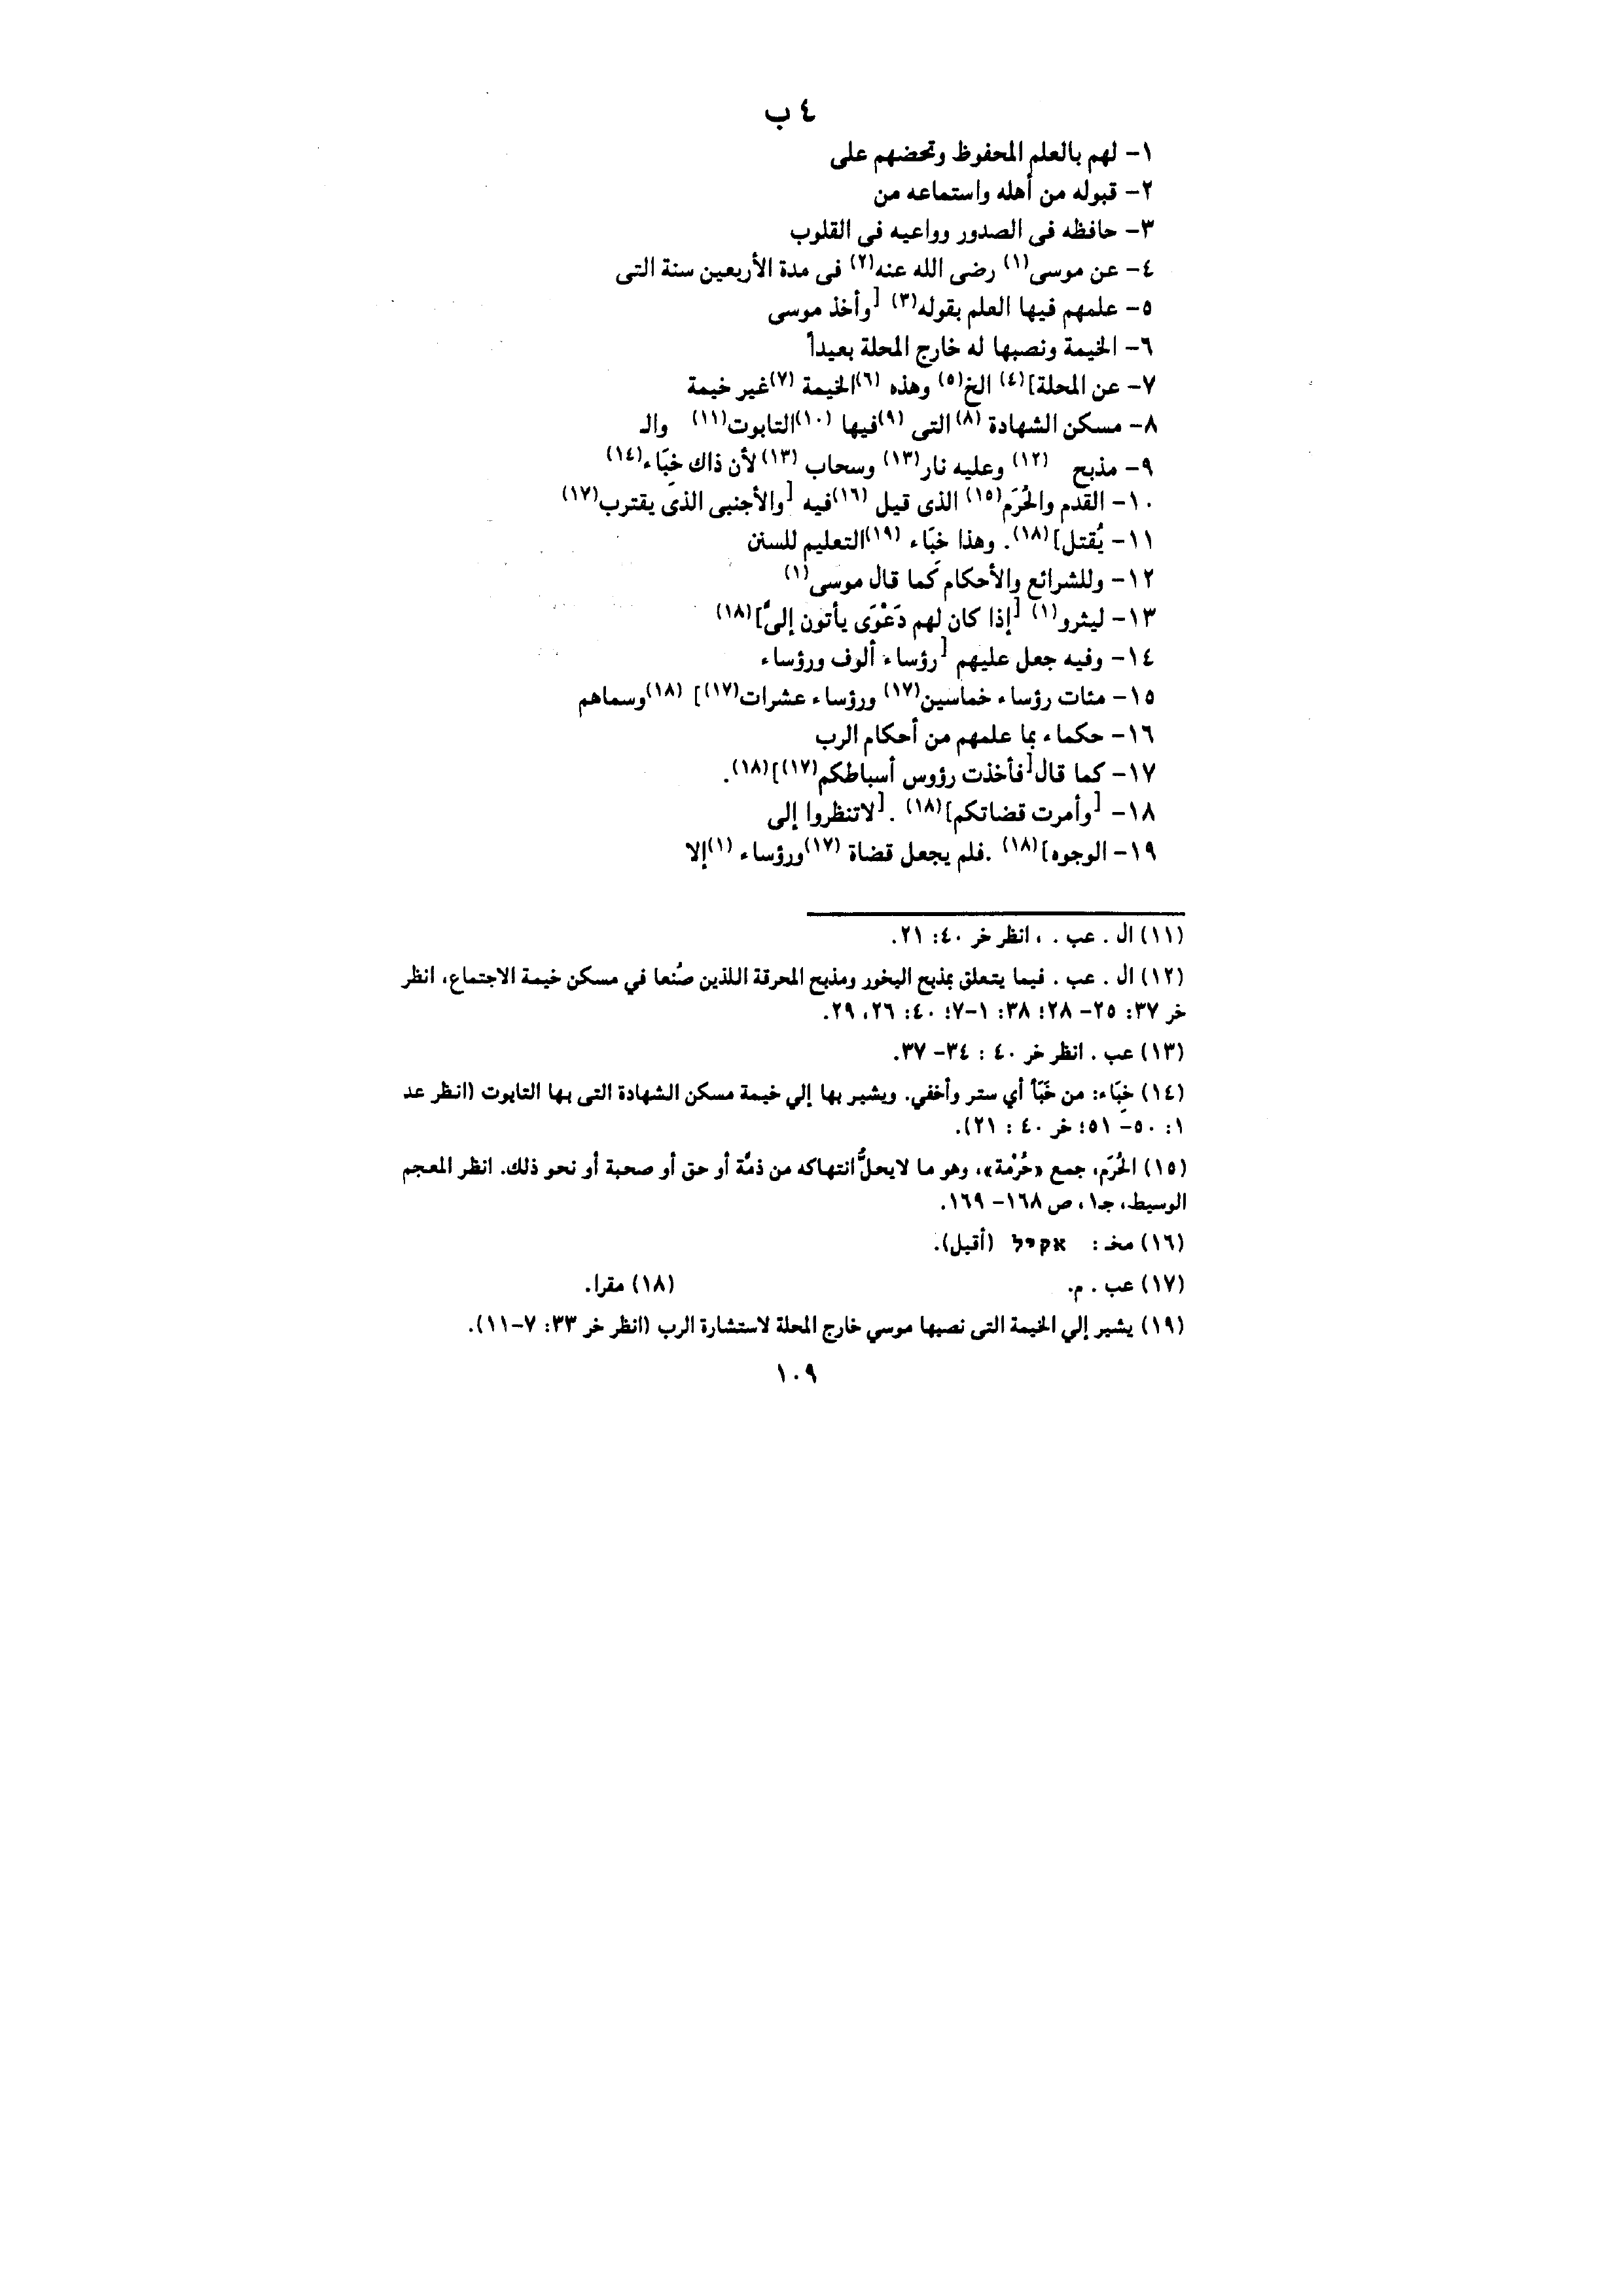 ٤ ب
١- لهم بالعلم المحفوظ وتحضهم على
٢- قبوله من أهله واستماعه من
٣- حافظه فى الصدور وواعيه فى القلوب
٤- عن موسى(١) رضى الله عنه(٢) فى مدة الأربعين سنة التى
٥- علمهم فيها العلم بقوله(٣) [وأخذ موسى
٦- الخيمة ونصبها له خارج المحلة بعيداً
٧- عن المحلة](٤) الخ(٥) وهذه (٦)الخيمة (٧)غير خيمة
٨- مسكن الشهادة (٨)التى (٩)فيها (١٠)التابوت(١١) والـ
٩- مذبح (١٢) وعليه نار(١٣) وسحاب (١٣)لأن ذاك خِبَاء(١٤)
١٠- القدم والحُرَم(١٥) الذى قيل (١٦)فيه [والأجنبى الذى يقترب(١٧)
١١- يُقتل](١٨). وهذا خِبَاء (١٩)التعليم للسنن
١٢- وللشرائع والأحكام كما قال موسى(١)
١٣- ليثرو(١) [إذا كان لهم دَعْوَى يأتون إلىَّ](١٨)
١٤- وفيه جعل عليهم [رؤساء ألوف ورؤساء
١٥- مئات رؤساء خماسين(١٧) ورؤساء عشرات(١٧)] (١٨)وسماهم
١٦- حكماء بما علمهم من أحكام الرب
١٧- كما قال[فأخذت رؤوس أسباطكم(١٧)](١٨).
١٨- [وأمرت قضاتكم](١٨) . [لاتنظروا إلى
١٩- الوجوه](١٨) .فلم يجعل قضاة (١٧)ورؤساء (١)إلا
(١١) ال . عب . ، انظر خر ٤٠: ٢١.
(١٢) ال . عب . فيما يتعلق بمذبح البخور ومذبح المحرقة اللذين صُنعا في مسكن خيمة الاجتماع، انظر
خر ٣٧: ٢٥- ٢٨؛ ٣٨: ١-٧؛ ٤٠: ٢٦، ٢٩.
(١٣) عب . انظر خر ٤٠ : ٣٤- ٣٧.
(١٤) خِبَاء: من خَبَّأ أي ستر وأخفي. ويشير بها إلي خيمة مسكن الشهادة التى بها التابوت (انظر عد
١: ٥٠- ٥١؛ خر ٤٠ : ٢١).
(١٥) الحُرَم، جمع «حُرْمة»، وهو ما لايحلُّ انتهاكه من ذمَّة أو حق أو صحبة أو نحو ذلك. انظر المعجم
الوسيط، جـ١، ص ١٦٨- ١٦٩.
(١٦) مخـ : אקיל (أقيل).
(١٧) عب . م. (١٨) مقرا.
(١٩) يشير إلي الخيمة التى نصبها موسي خارج المحلة لاستشارة الرب (انظر خر ٣٣: ٧-١١).
١٠٩